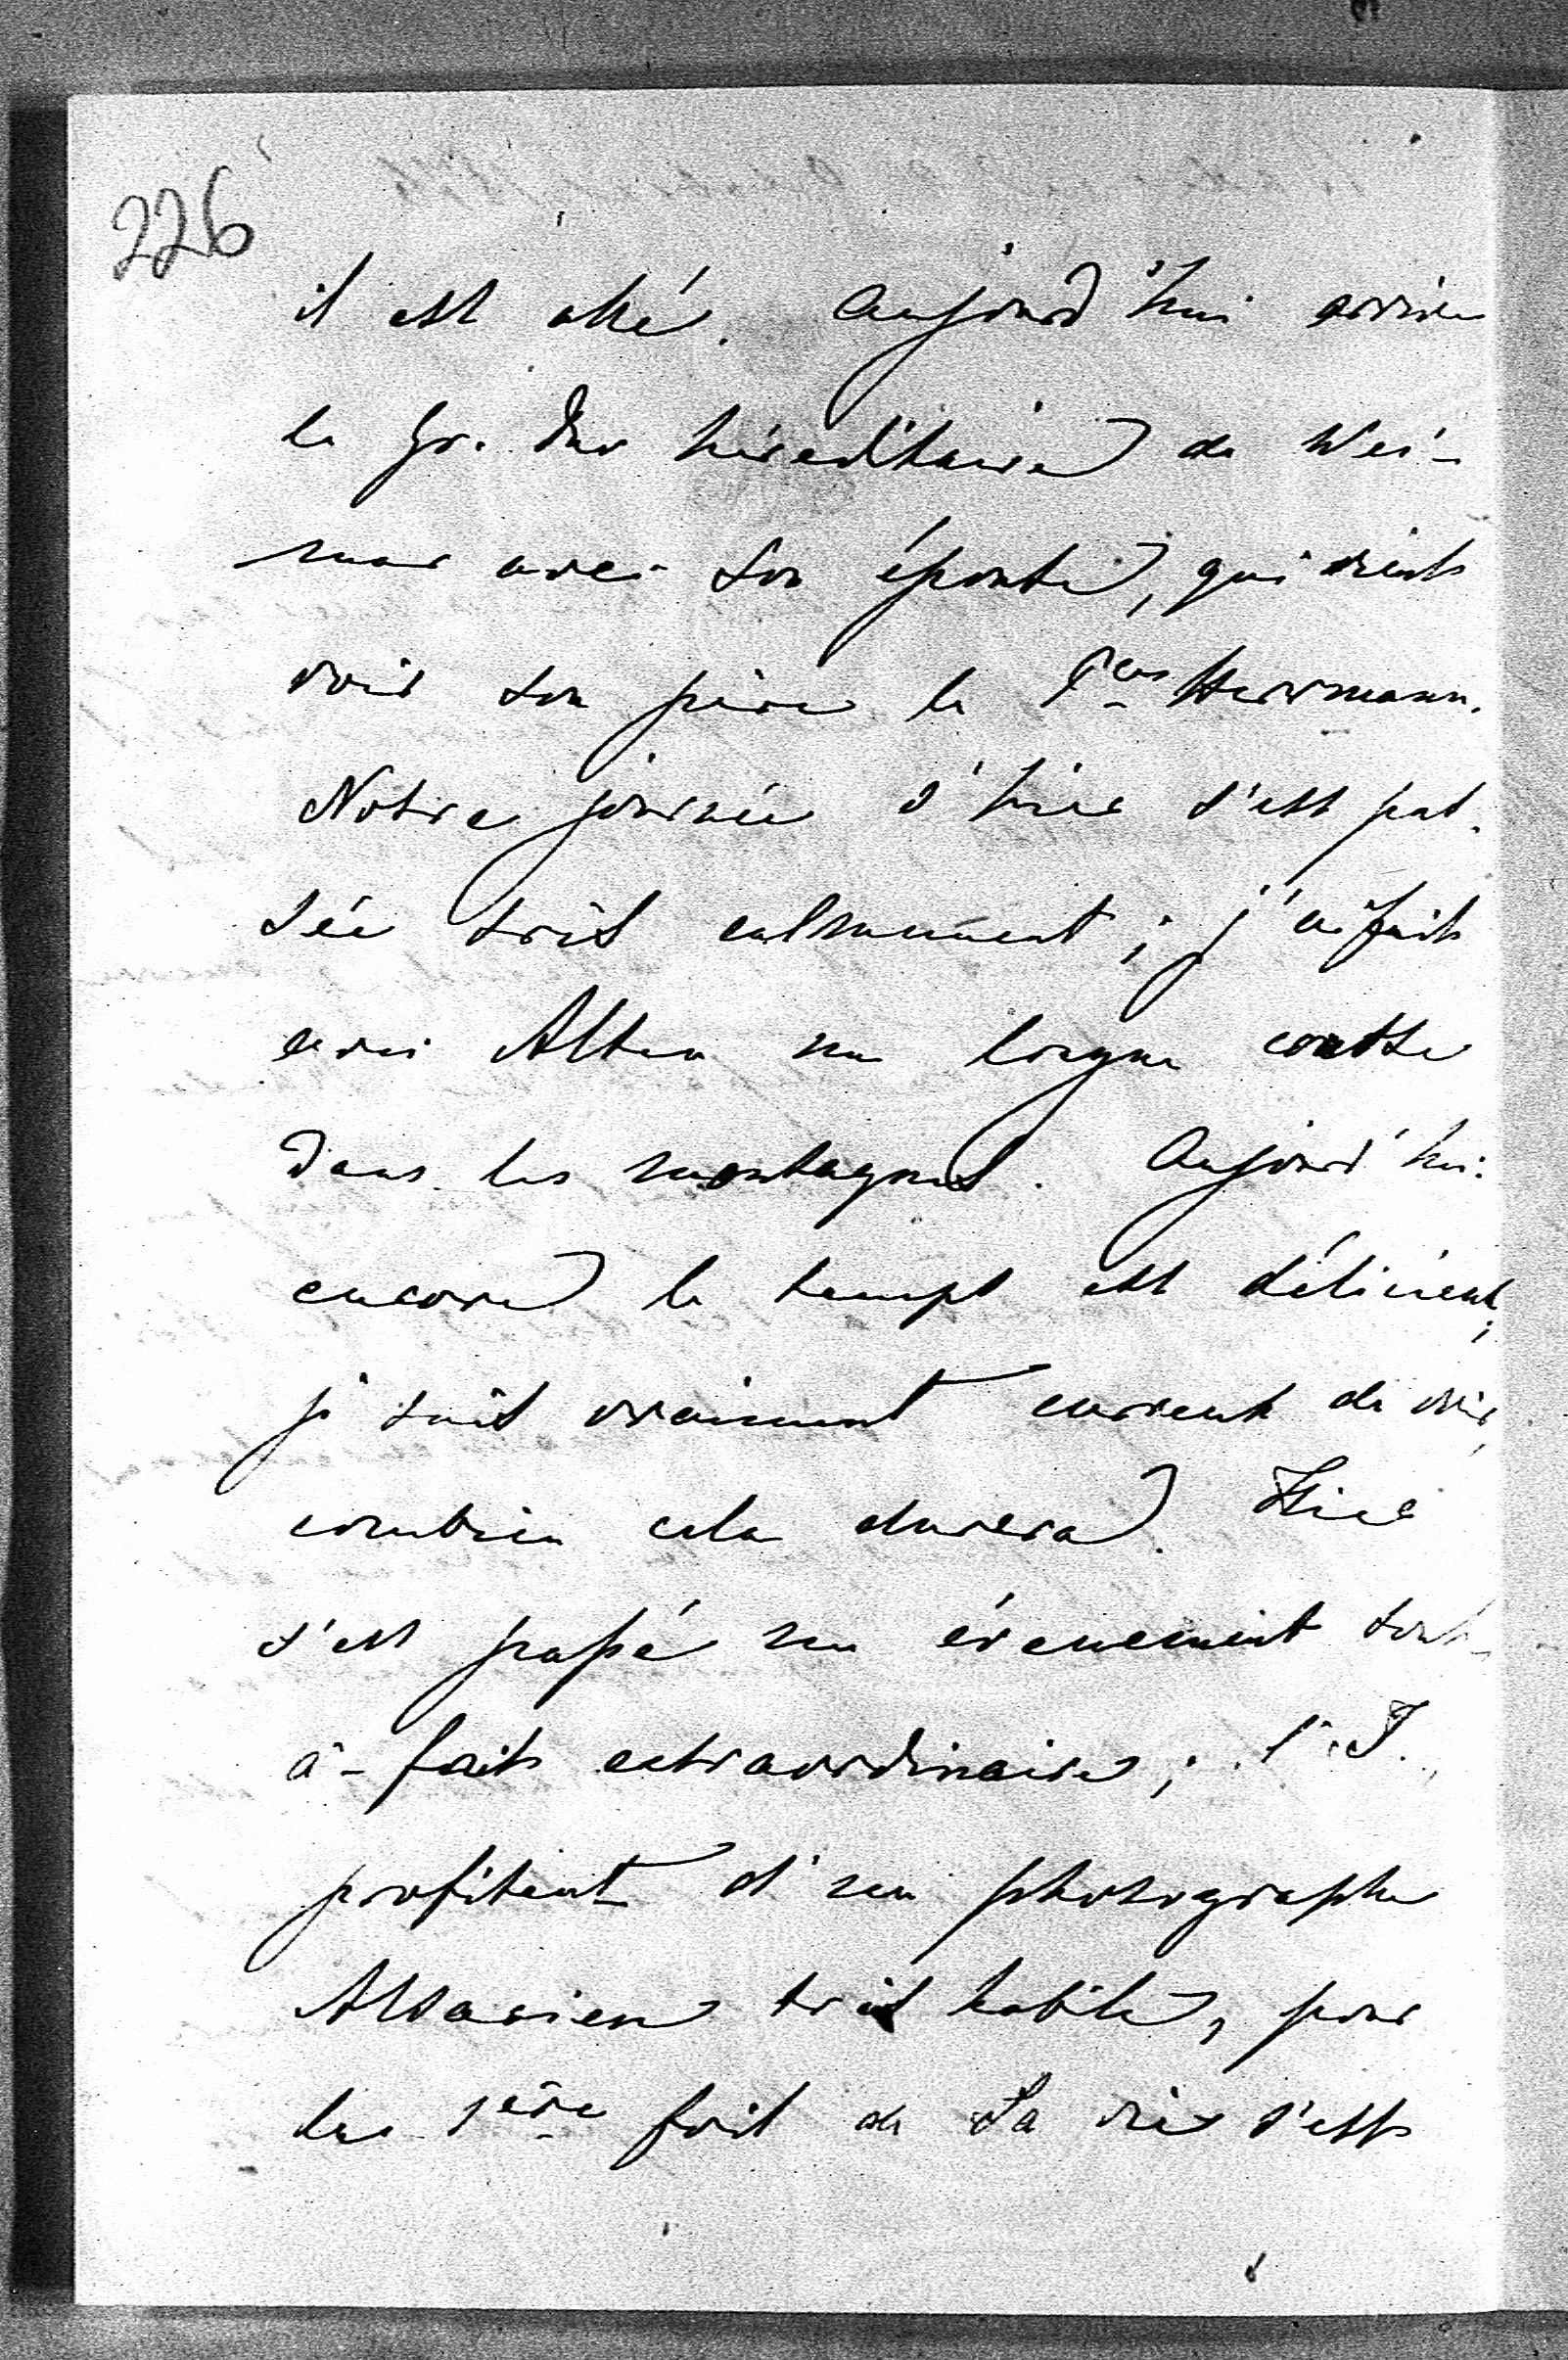 226
il est allé. Aujourd'hui arrive
le Gr. Duc héréditaire de Wei-
mar avec son épouse, qui vient
voir son père le Pce Herrmann.
Notre journée d'hier s'est pas-
sée très calmement; j'ai fait
avec une longue course
dans les montagnes. Aujourd'hui
encore le temps est délicieux;
je suis vraiment curieux de voir,
combien cela durera. Hier
s'est passé un évenement tout-
à-fait extraordinaire; l'I.
profitant d'un photographe
Alsacien très habile, pour
la 1ère fois de sa vie s'est